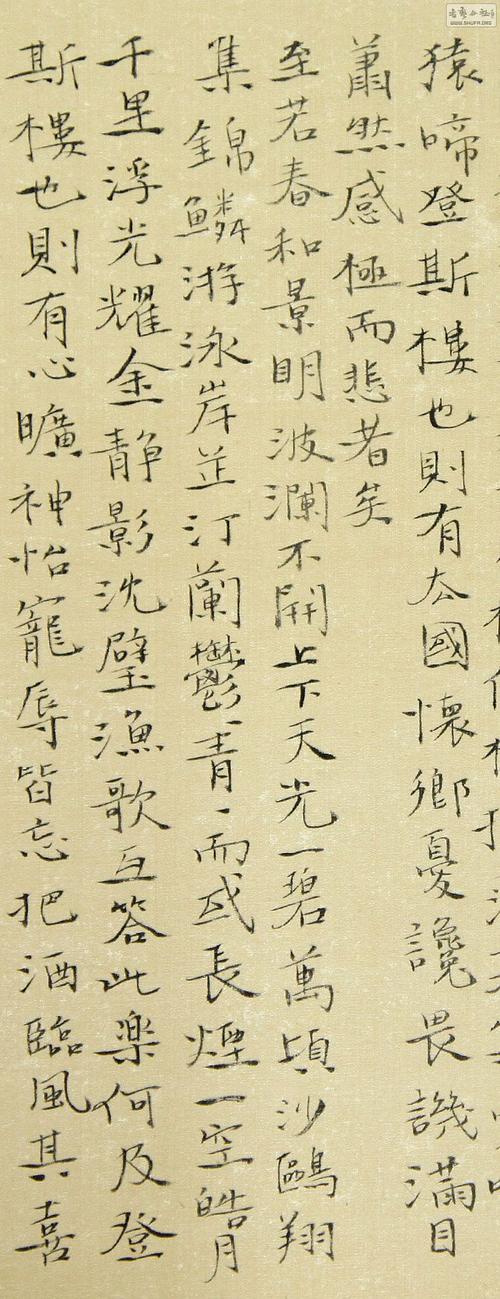 猿啼登斯樓也則有去國懷鄉憂讒畏譏滿目
蕭然感極而悲者矣
至若春和景明波瀾不開上下天光一碧萬頃沙鷗翔
集錦鱗游泳岸芷汀蘭鬱、青、而或長煙一空皓月
千里浮光耀金靜影沈璧漁歌互答此樂何及登
斯樓也則有心曠神怡寵辱皆忘把酒臨風其喜
WWW.SHUFA.ORG